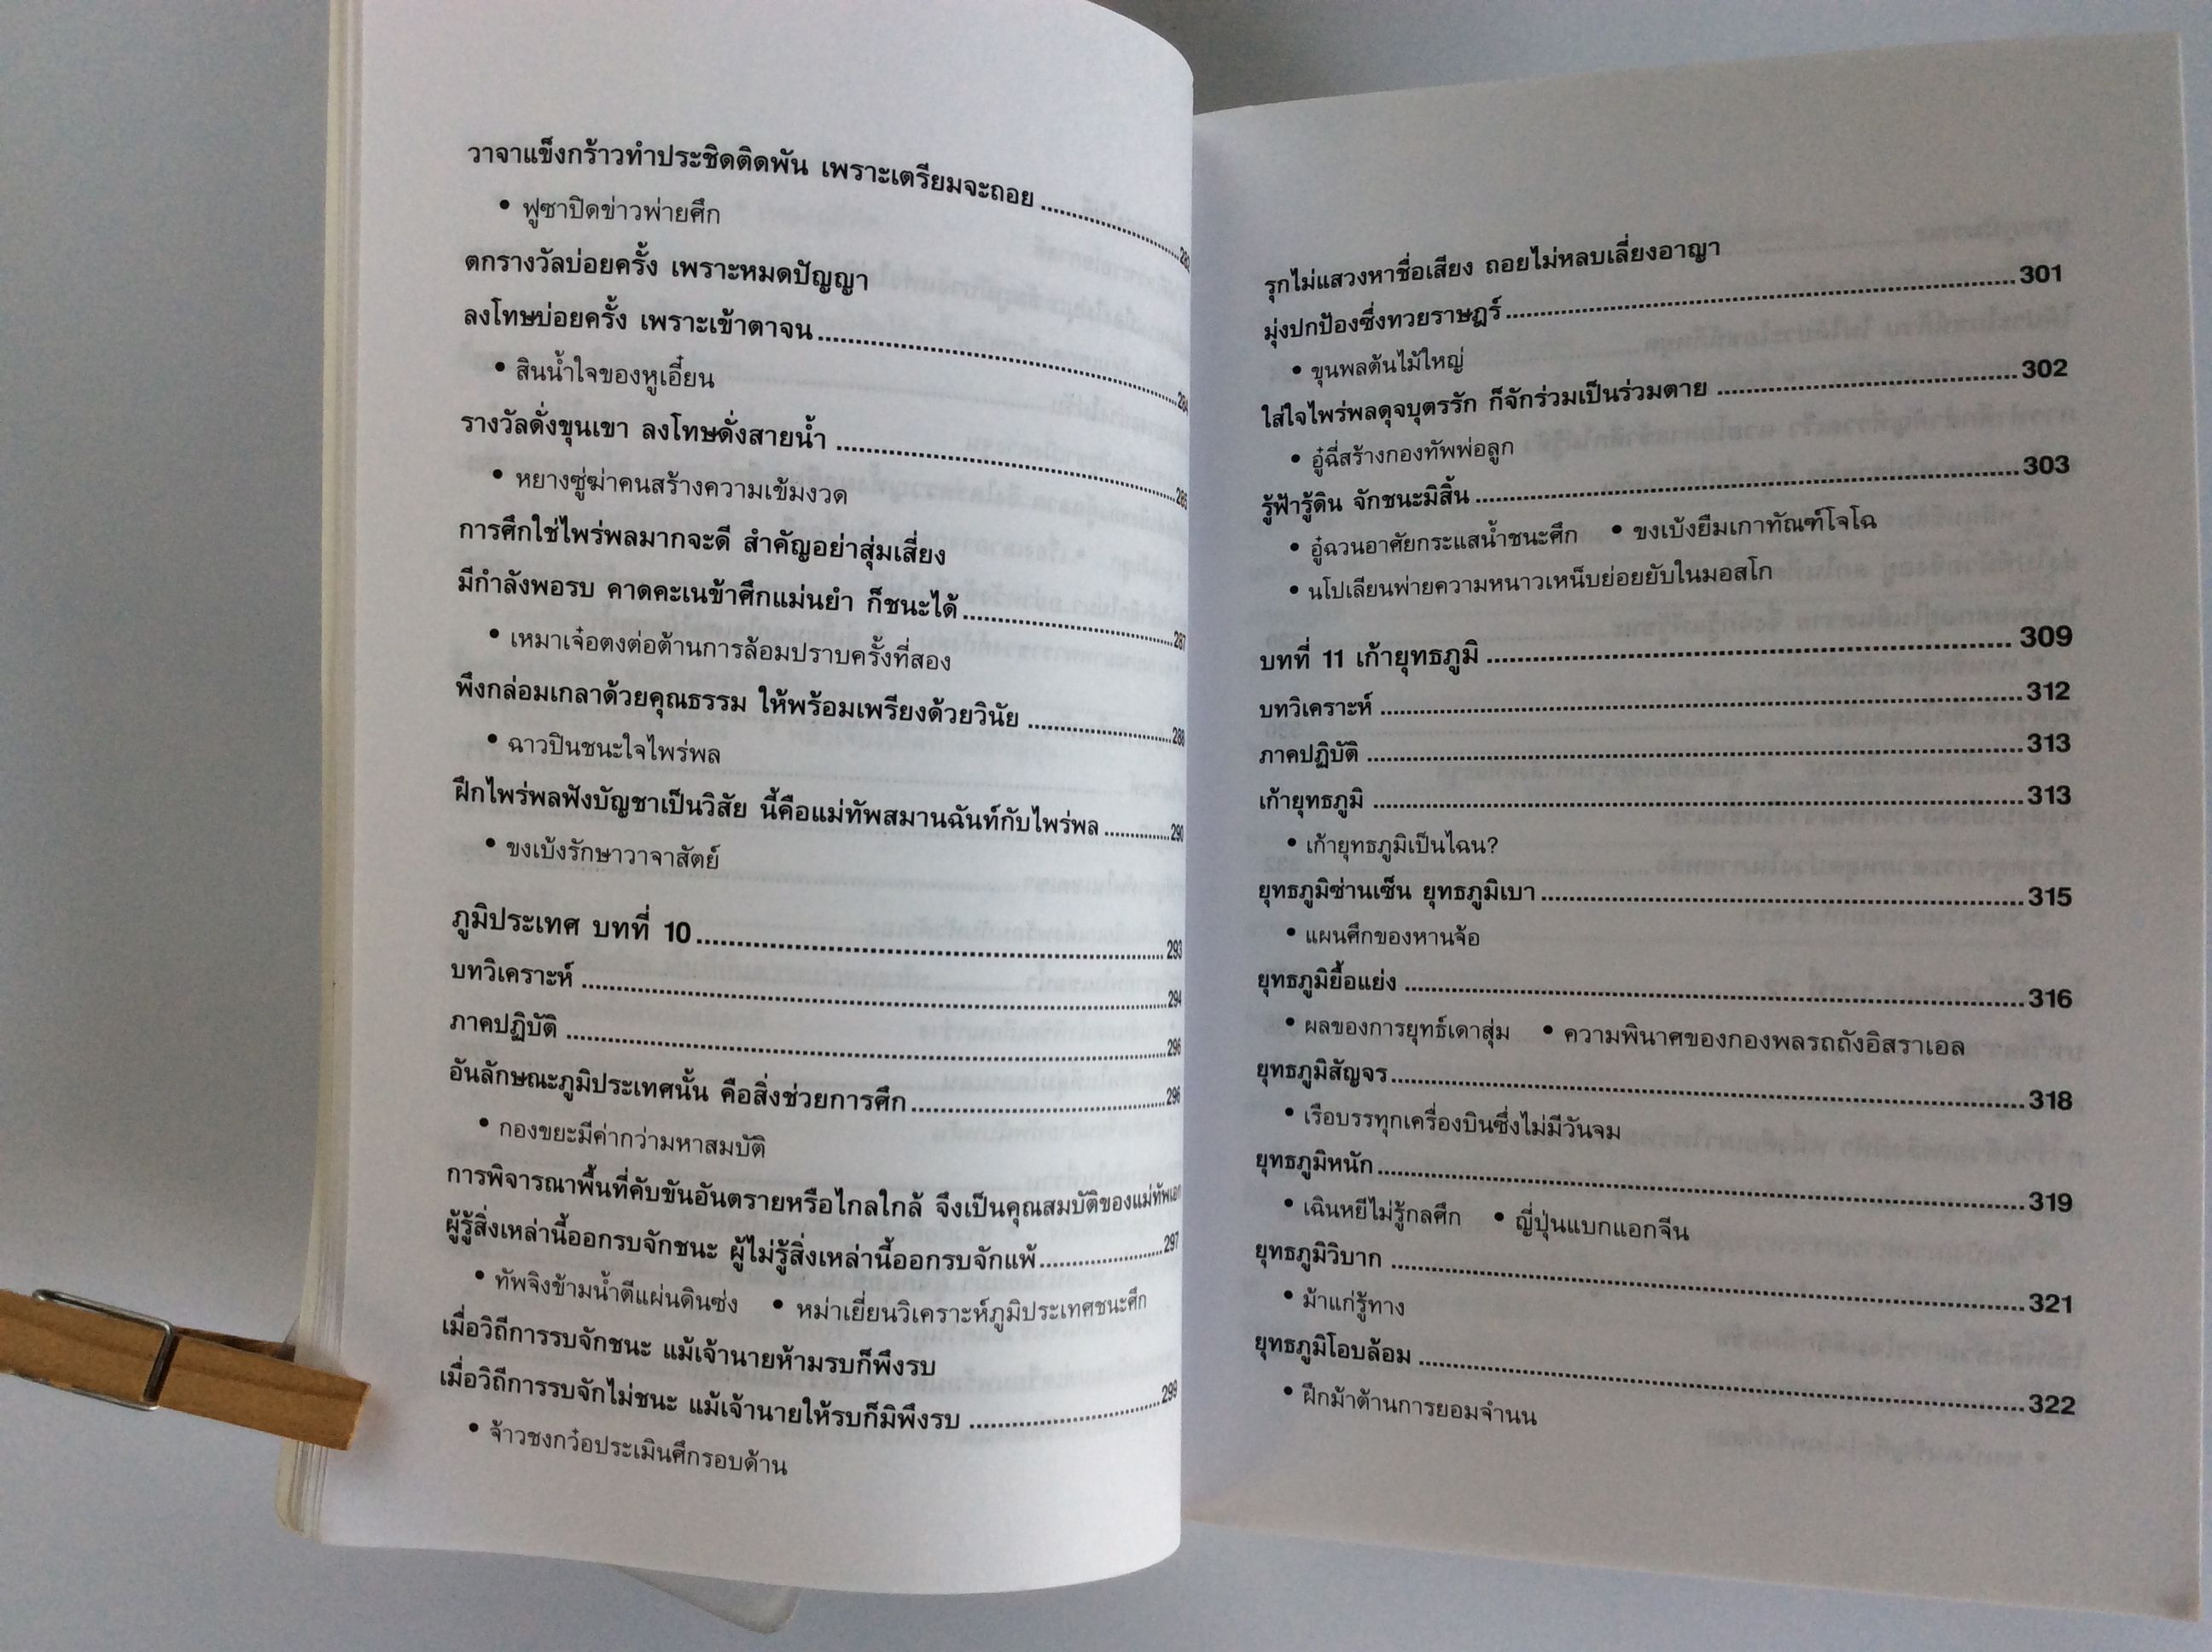 วาจาแข็งกร้าวทำประชิดติดพัน เพราะเตรียมจะถอย ........ 283
• ฟูซาปิดข่าวพ่ายศึก
ตกรางวัลบ่อยครั้ง เพราะหมดปัญญา
ลงโทษบ่อยครั้ง เพราะเข้าตาจน ........ 284
• สินน้ำใจของหูเอี๋ยน
รางวัลดั่งขุนเขา ลงโทษดั่งสายน้ำ ........ 285
• หยางซู่ฆ่าคนสร้างความเข้มงวด
การศึกใช่ไพร่พลมากจะดี สำคัญอย่าสุ่มเสี่ยง
มีกำลังพอรบ คาดคะเนข้าศึกแม่นยำ ก็ชนะได้ ........ 287
• เหมาเจ๋อตงต่อต้านการล้อมปราบครั้งที่สอง
พึงกล่อมเกลาด้วยคุณธรรม ให้พร้อมเพรียงด้วยวินัย ........ 288
• ฉาวปินชนะใจไพร่พล
ฝึกไพร่พลฟังบัญชาเป็นวิสัย นี้คือแม่ทัพสมานฉันท์กับไพร่พล ........ 290
• ขงเบ้งรักษาวาจาสัตย์
ภูมิประเทศ บทที่ 10 ........ 293
บทวิเคราะห์ ........ 294
ภาคปฏิบัติ ........ 296
อันลักษณะภูมิประเทศนั้น คือสิ่งช่วยการศึก ........ 296
• กองขยะมีค่ากว่ามหาสมบัติ
การพิจารณาพื้นที่คับขันอันตรายหรือไกลใกล้ จึงเป็นคุณสมบัติของแม่ทัพเอก
ผู้รู้สิ่งเหล่านี้ออกรบจักชนะ ผู้ไม่รู้สิ่งเหล่านี้ออกรบจักแพ้ ........ 297
• ทัพจิงข้ามน้ำตีแผ่นดินซ่ง • หม่าเยี่ยนวิเคราะห์ภูมิประเทศชนะศึก
เมื่อวิถีการรบจักชนะ แม้เจ้านายห้ามรบก็พึงรบ
เมื่อวิถีการรบจักไม่ชนะ แม้เจ้านายให้รบก็มิพึงรบ ........ 299
• จ้าวชงกว๋อประเมินศึกรอบด้าน
รุกไม่แสวงหาชื่อเสียง ถอยไม่หลบเลี่ยงอาญา
มุ่งปกป้องซึ่งทวยราษฎร์ ........ 301
• ขุนพลต้นไม้ใหญ่
ใส่ใจไพร่พลดุจบุตรรัก ก็จักร่วมเป็นร่วมตาย ........ 302
• อู๋ฉี่สร้างกองทัพพ่อลูก
รู้ฟ้ารู้ดิน จักชนะมิสิ้น ........ 303
• อู๋ฉวนอาศัยกระแสน้ำชนะศึก • ขงเบ้งยืมเกาทัณฑ์โจโฉ
• นโปเลียนพ่ายความหนาวเหน็บย่อยยับในมอสโก
บทที่ 11 เก้ายุทธภูมิ ........ 309
บทวิเคราะห์ ........ 312
ภาคปฏิบัติ ........ 313
เก้ายุทธภูมิ ........ 313
• เก้ายุทธภูมิเป็นไฉน?
ยุทธภูมิซ่านเซ็น ยุทธภูมิเบา ........ 315
• แผนศึกของหานจ้อ
ยุทธภูมิยื้อแย่ง ........ 316
• ผลของการยุทธ์เดาสุ่ม • ความพินาศของกองพลรถถังอิสราเอล
ยุทธภูมิสัญจร ........ 318
• เรือบรรทุกเครื่องบินซึ่งไม่มีวันจม
ยุทธภูมิหนัก ........ 319
• เฉินหยีไม่รู้กลศึก • ญี่ปุ่นแบกแอกจีน
ยุทธภูมิวิบาก ........ 321
• ม้าแก่รู้ทาง
ยุทธภูมิโอบล้อม ........ 322
• ฝึกม้าต้านการยอมจำนน